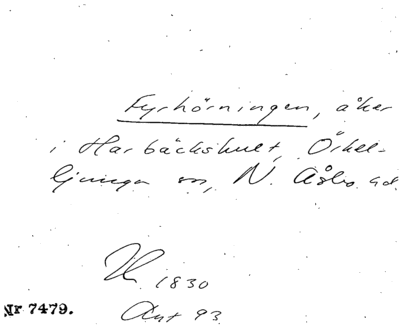 Fyrhörningen, åker
i Harbäckshult, Örkel-
ljunga sn, N. Åsbo hd.
1830
Akt 93
Nr 7479.